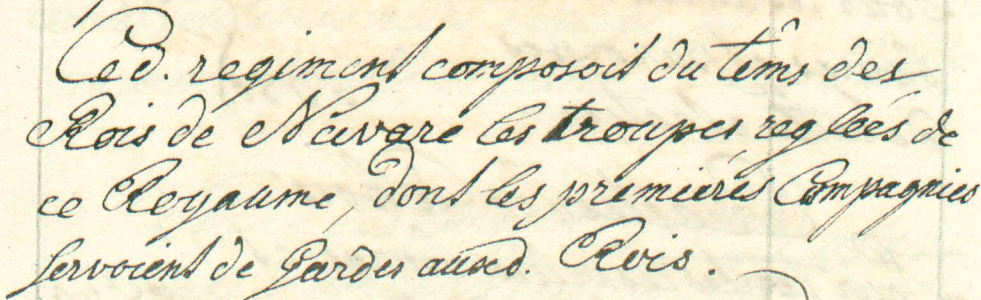 Led. regiment composoit du têms des
Rois de Navare les troupes reglées de
ce Royaume, dont les premiéres Compagnies
servoient de gardes auxd. Rois.